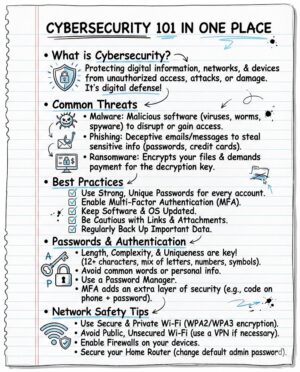 CYBERSECURITY 101 IN ONE PLACE
• What is Cybersecurity?
Protecting digital information, networks, & devices
from unauthorized access, attacks, or damage.
It's digital defense!
• Common Threats
• Malware: Malicious software (viruses, worms,
spyware) to disrupt or gain access.
• Phishing: Deceptive emails/messages to steal
sensitive info (passwords, credit cards).
• Ransomware: Encrypts your files & demands
payment for the decryption key.
• Best Practices
Use Strong, Unique Passwords for every account.
Enable Multi-Factor Authentication (MFA).
Keep Software & OS Updated.
Be Cautious with Links & Attachments.
Regularly Back Up Important Data.
• Passwords & Authentication
• Length, Complexity, & Uniqueness are key!
(12+ characters, mix of letters, numbers, symbols).
• Avoid common words or personal info.
• Use a Password Manager.
• MFA adds an extra layer of security (e.g., code on
phone + password).
A
P
• Network Safety Tips
• Use Secure & Private Wi-Fi (WPA2/WPA3 encryption).
• Avoid Public, Unsecured Wi-Fi (use a VPN if necessary).
• Enable Firewalls on your devices.
• Secure your Home Router (change default admin password).